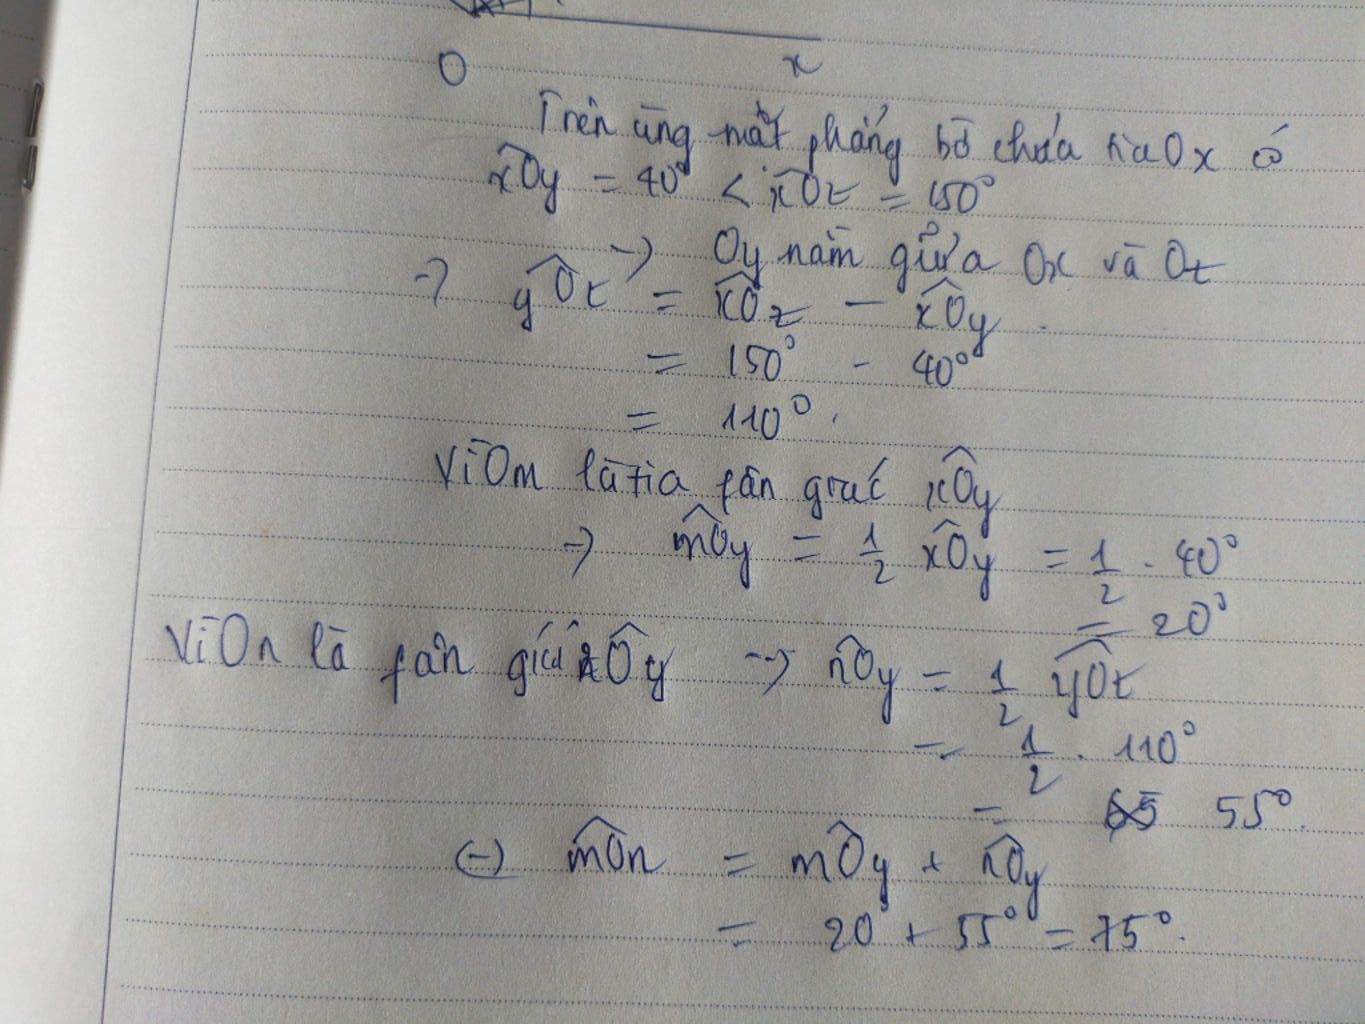 O x
Trên cùng mặt phẳng bờ chứa tia Ox có
xOy = 40° < xOz = 150°
→ Oy nằm giữa Ox và Oz
→ yOz = xOz - xOy
= 150° - 40°
= 110°.
Vì Om là tia fân giác xOy
→ mOy = 1/2 xOy = 1/2 . 40°
= 20°
Vì On là fân giác zOy → nOy = 1/2 yOz
= 1/2 . 110°
= 55°.
(→) mOn = mOy + nOy
= 20° + 55° = 75°.